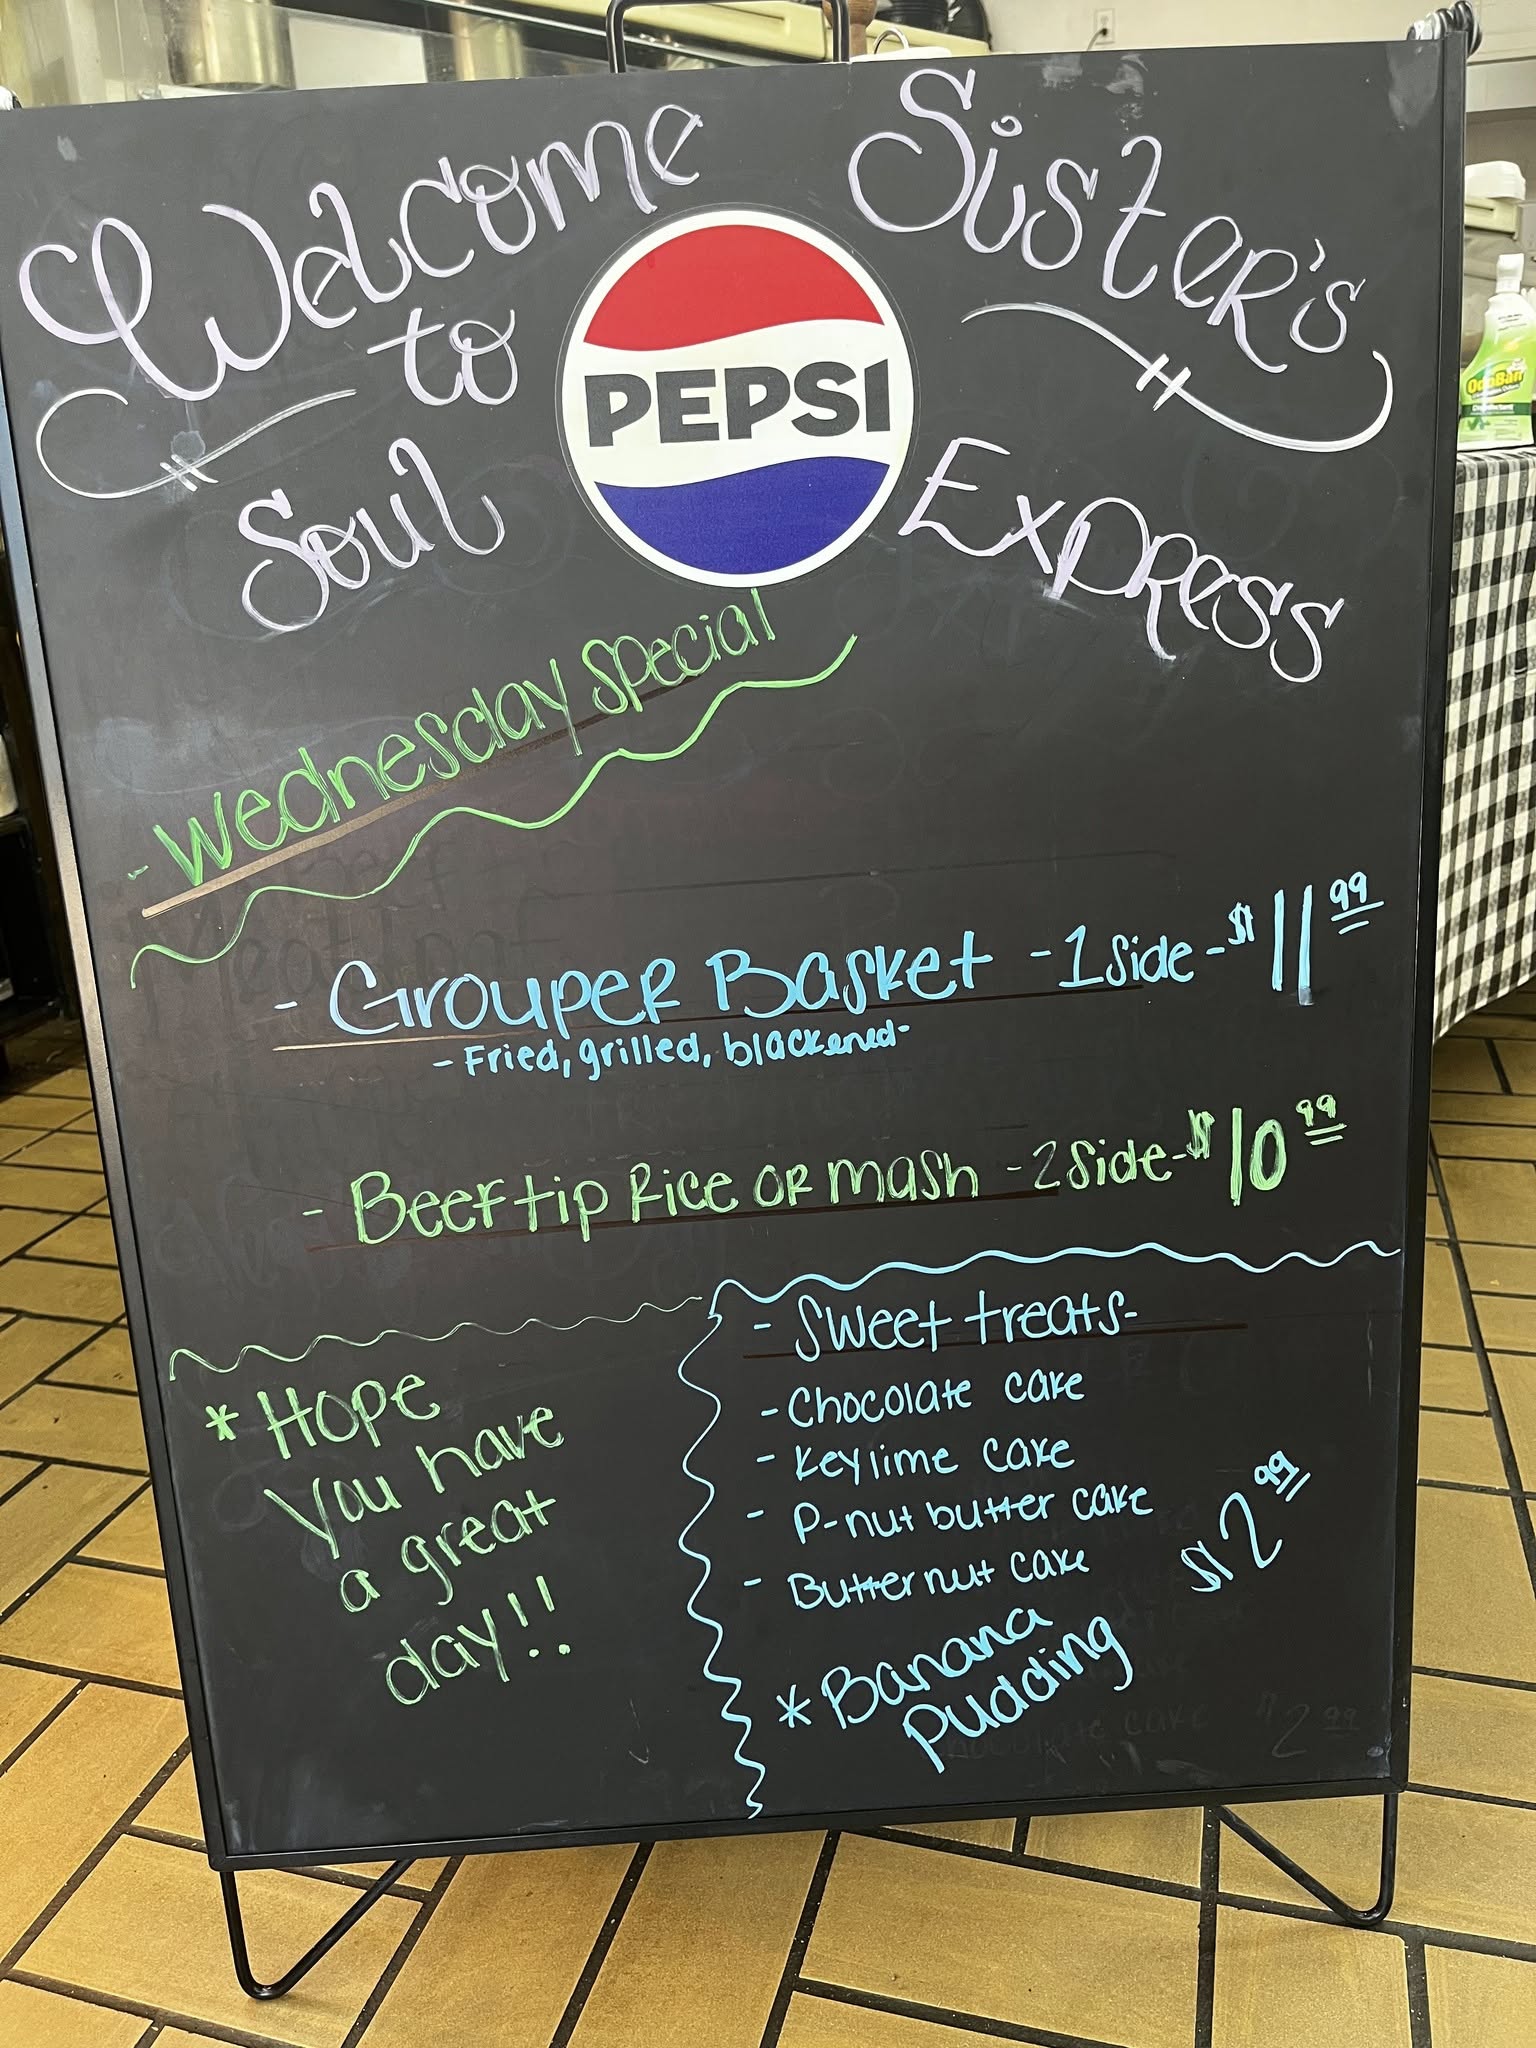 Welcome
to
Sister's
Soul
Express
PEPSI
- Wednesday Special
- Grouper Basket - 1 Side - $11.99
- Fried, grilled, blackened -
- Beef tip Rice or mash - 2 Side - $10.99
* Hope
You have
a great
day!!
- Sweet treats -
- Chocolate cake
- Keylime cake
- P-nut butter cake
- Butternut cake
$2.99
* Banana
Pudding
OdoBan